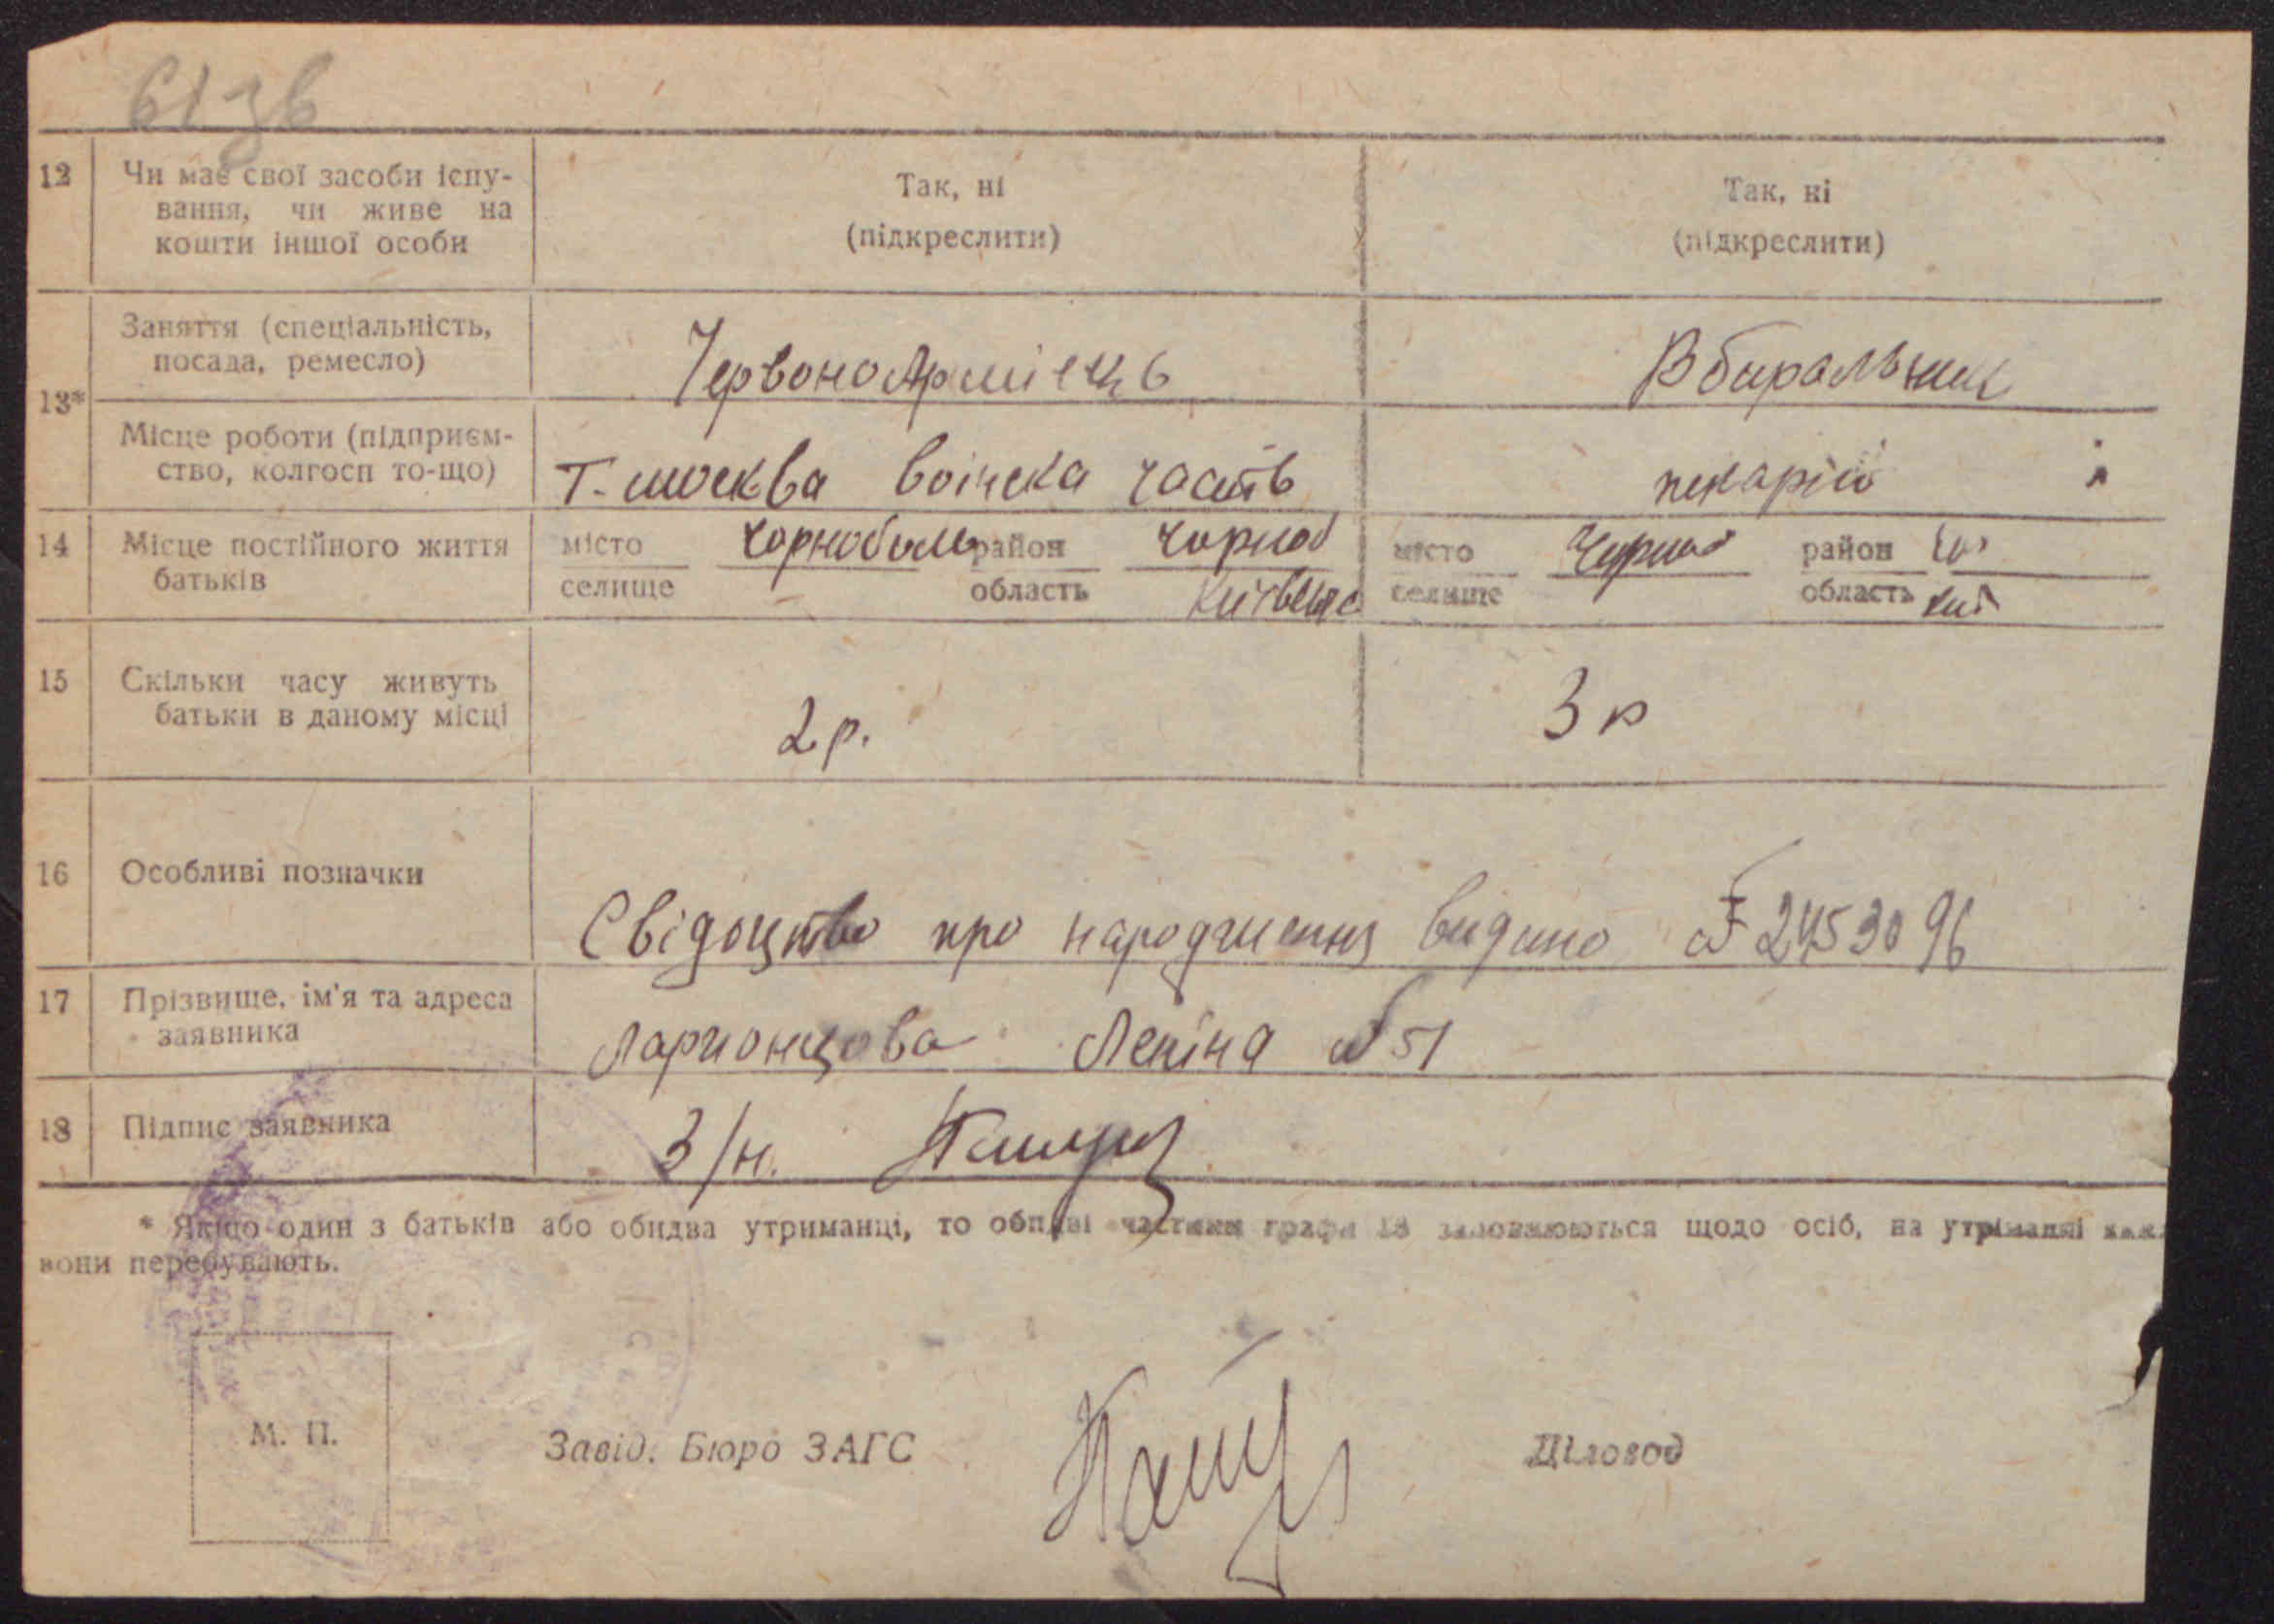 61зв
12 Чи має свої засоби існу- Так, ні Так, ні
вання, чи живе на (підкреслити) (підкреслити)
кошти іншої особи
Заняття (спеціальність, Червоноармієць Вбиральниц
посада, ремесло)
13*
Місце роботи (підприєм- Т. москва воінска часть пекарій
ство, колгосп то-що)
14 Місце постійного життя місто Чорнобиль район Чорноб місто Чорноб район Чо
батьків селище область Київська селище область Киї
15 Скільки часу живуть 2 р. 3 р
батьки в даному місці
16 Особливі позначки
Свідоцтво про народження видано № 2453096
17 Прізвище, ім'я та адреса
заявника Ларионцова Леніна № 51
18 Підпис заявника З/н.
* Якщо один з батьків або обидва утриманці, то обидві частини графи 13 заповнюються щодо осіб, на утриманні яких
вони перебувають.
М. П. Завід. Бюро ЗАГС Діловод